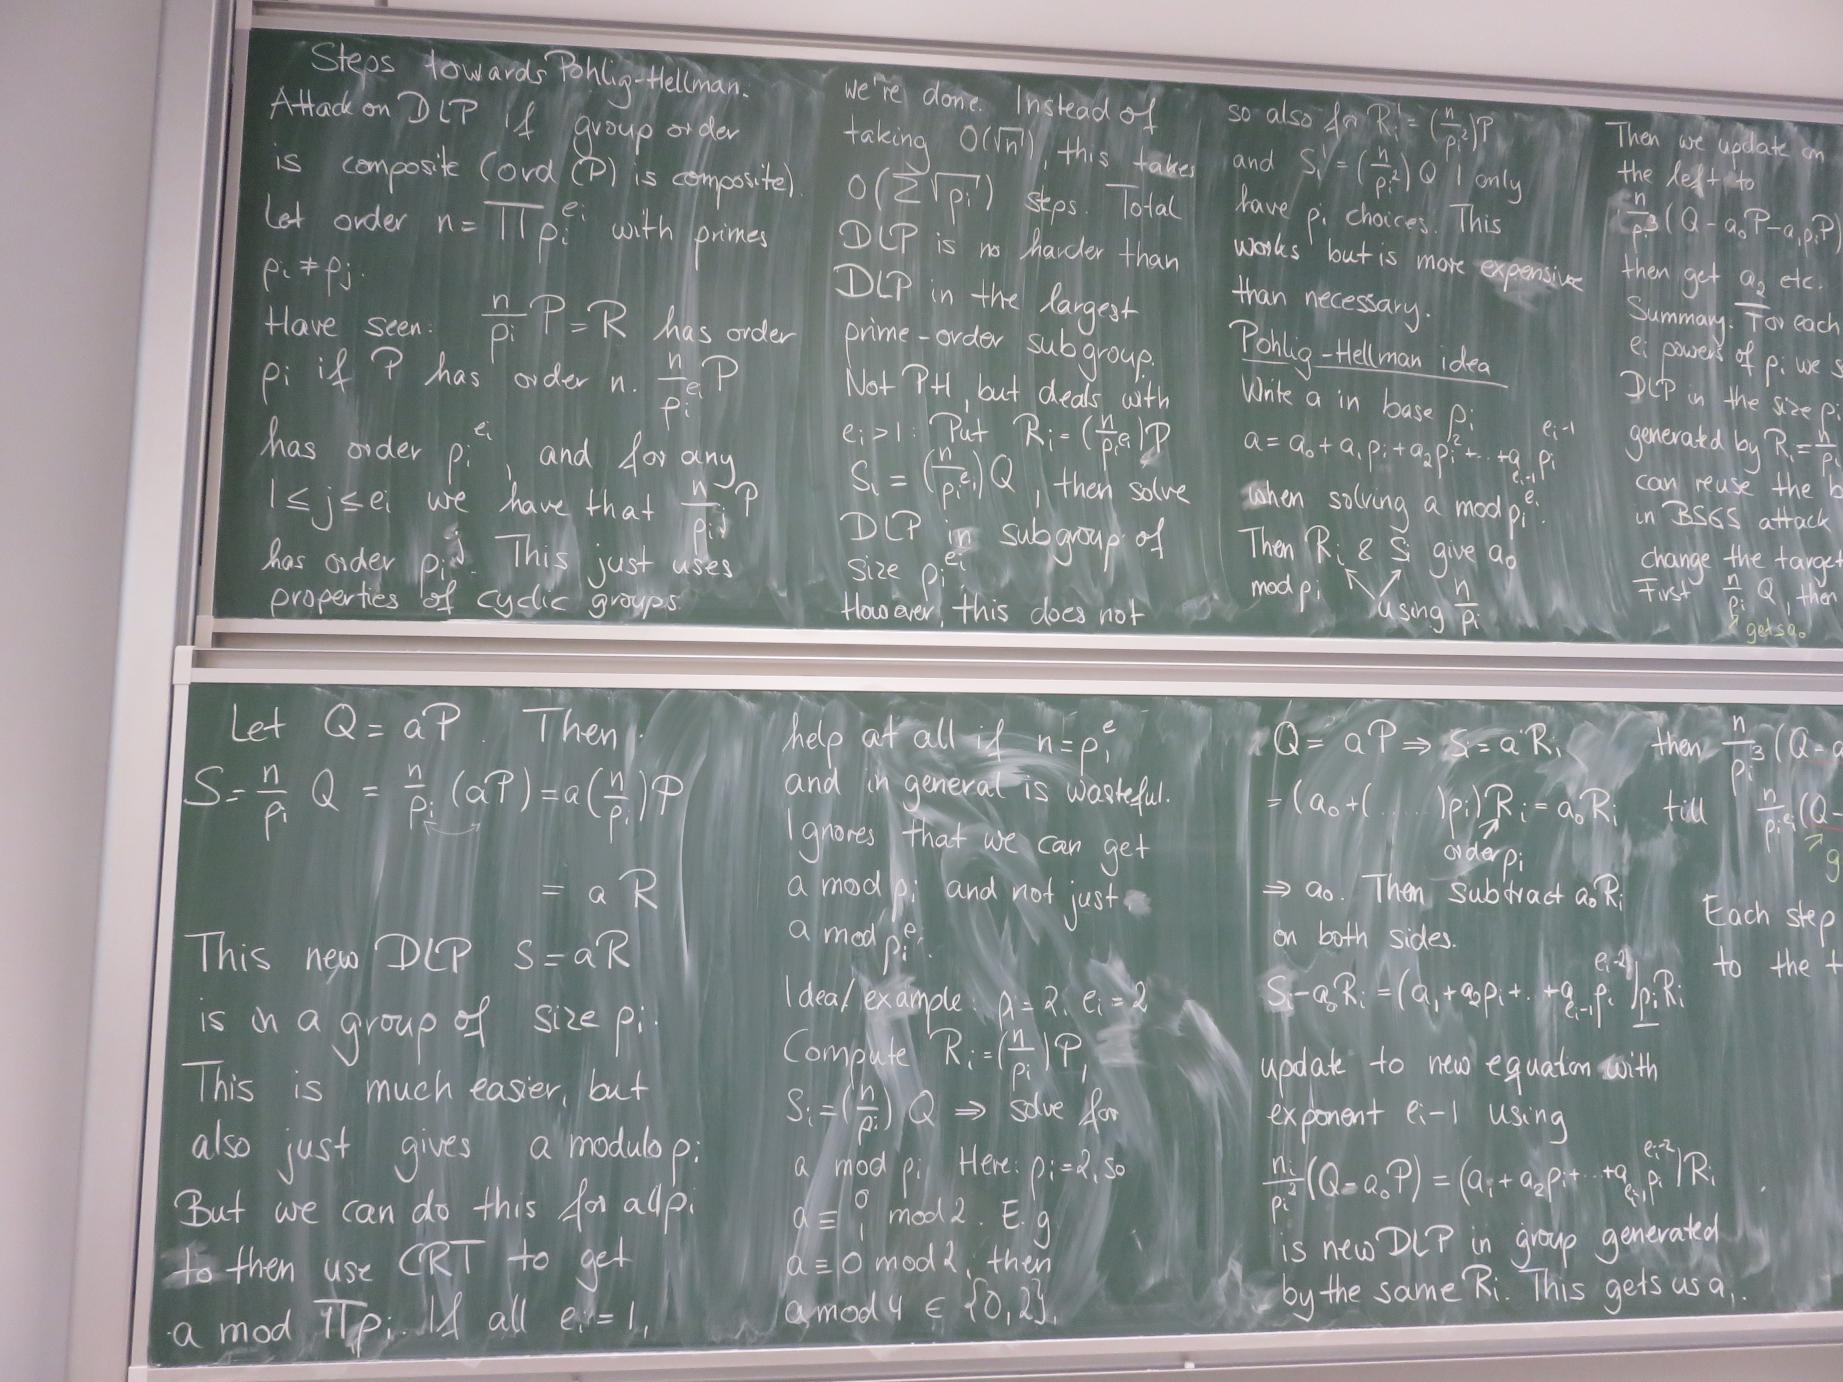 Steps towards Pohlig-Hellman.
Attack on DLP if group order
is composite (ord (P) is composite).
Let order n = ∏ pᵢ^eᵢ with primes
pᵢ ≠ pⱼ.
Have seen: n/pᵢ P = R has order
pᵢ if P has order n. n/pᵢ^eᵢ P
has order pᵢ^eᵢ, and for any
1 ≤ j ≤ eᵢ we have that n/pᵢ^j P
has order pᵢ^j. This just uses
properties of cyclic groups.
Let Q = aP. Then
S = n/pᵢ Q = n/pᵢ (aP) = a(n/pᵢ)P
= a R
This new DLP S = aR
is in a group of size pᵢ.
This is much easier, but
also just gives a modulo pᵢ
But we can do this for all pᵢ
to then use CRT to get
a mod ∏pᵢ. If all eᵢ = 1,
we're done. Instead of
taking O(√n), this takes
O(∑√pᵢ) steps. Total
DLP is no harder than
DLP in the largest
prime-order subgroup.
Not PH, but deals with
eᵢ > 1: Put Rᵢ = (n/pᵢ^eᵢ)P
Sᵢ = (n/pᵢ^eᵢ)Q, then solve
DLP in subgroup of
size pᵢ^eᵢ.
However, this does not
help at all if n = pᵢ^e
and in general is wasteful.
Ignores that we can get
a mod pᵢ and not just
a mod pᵢ^eᵢ.
Idea/example: pᵢ = 2, eᵢ = 2
Compute Rᵢ = (n/pᵢ)P,
Sᵢ = (n/pᵢ) Q ⇒ solve for
a mod pᵢ. Here: pᵢ = 2, so
a ≡ 0 1 mod 2. E.g
a ≡ 0 mod 2, then
a mod 4 ∈ {0,2},
so also for Rᵢ' = (n/pᵢ²)P
and Sᵢ' = (n/pᵢ²) Q I only
have pᵢ choices. This
works but is more expensive
than necessary.
Pohlig-Hellman idea
Write a in base pᵢ
a = a₀ + a₁pᵢ + a₂pᵢ² + ... + a_{eᵢ-1} pᵢ^{eᵢ-1}
when solving a mod pᵢ^eᵢ.
Then Rᵢ & Sᵢ give a₀
mod pᵢ
using n/pᵢ
Q = aP ⇒ Sᵢ = a Rᵢ
= (a₀ + (.....)pᵢ) Rᵢ = a₀Rᵢ
order pᵢ
⇒ a₀. Then subtract a₀Rᵢ
on both sides.
Sᵢ - a₀Rᵢ = (a₁ + a₂pᵢ + .. + a_{eᵢ-1} pᵢ^{eᵢ-2}) pᵢRᵢ
update to new equation with
exponent eᵢ-1 using
nᵢ/pᵢ² (Q - a₀P) = (a₁ + a₂pᵢ + ... + a_{eᵢ-1} pᵢ^{eᵢ-2})Rᵢ
is new DLP in group generated
by the same Rᵢ. This gets us a₁.
Then we update on
the left to
n/pᵢ³ (Q - a₀P - a₁pᵢP)
then get a₂ etc.
Summary: For each
eᵢ powers of pᵢ we s
DLP in the size pᵢ
generated by Rᵢ = n/pᵢ
can reuse the b
in BSGS attack
change the target
First n/pᵢ Q, then
gets a₀
then n/pᵢ³ (Q -
till n/pᵢ^eᵢ (Q -
g
Each step
to the